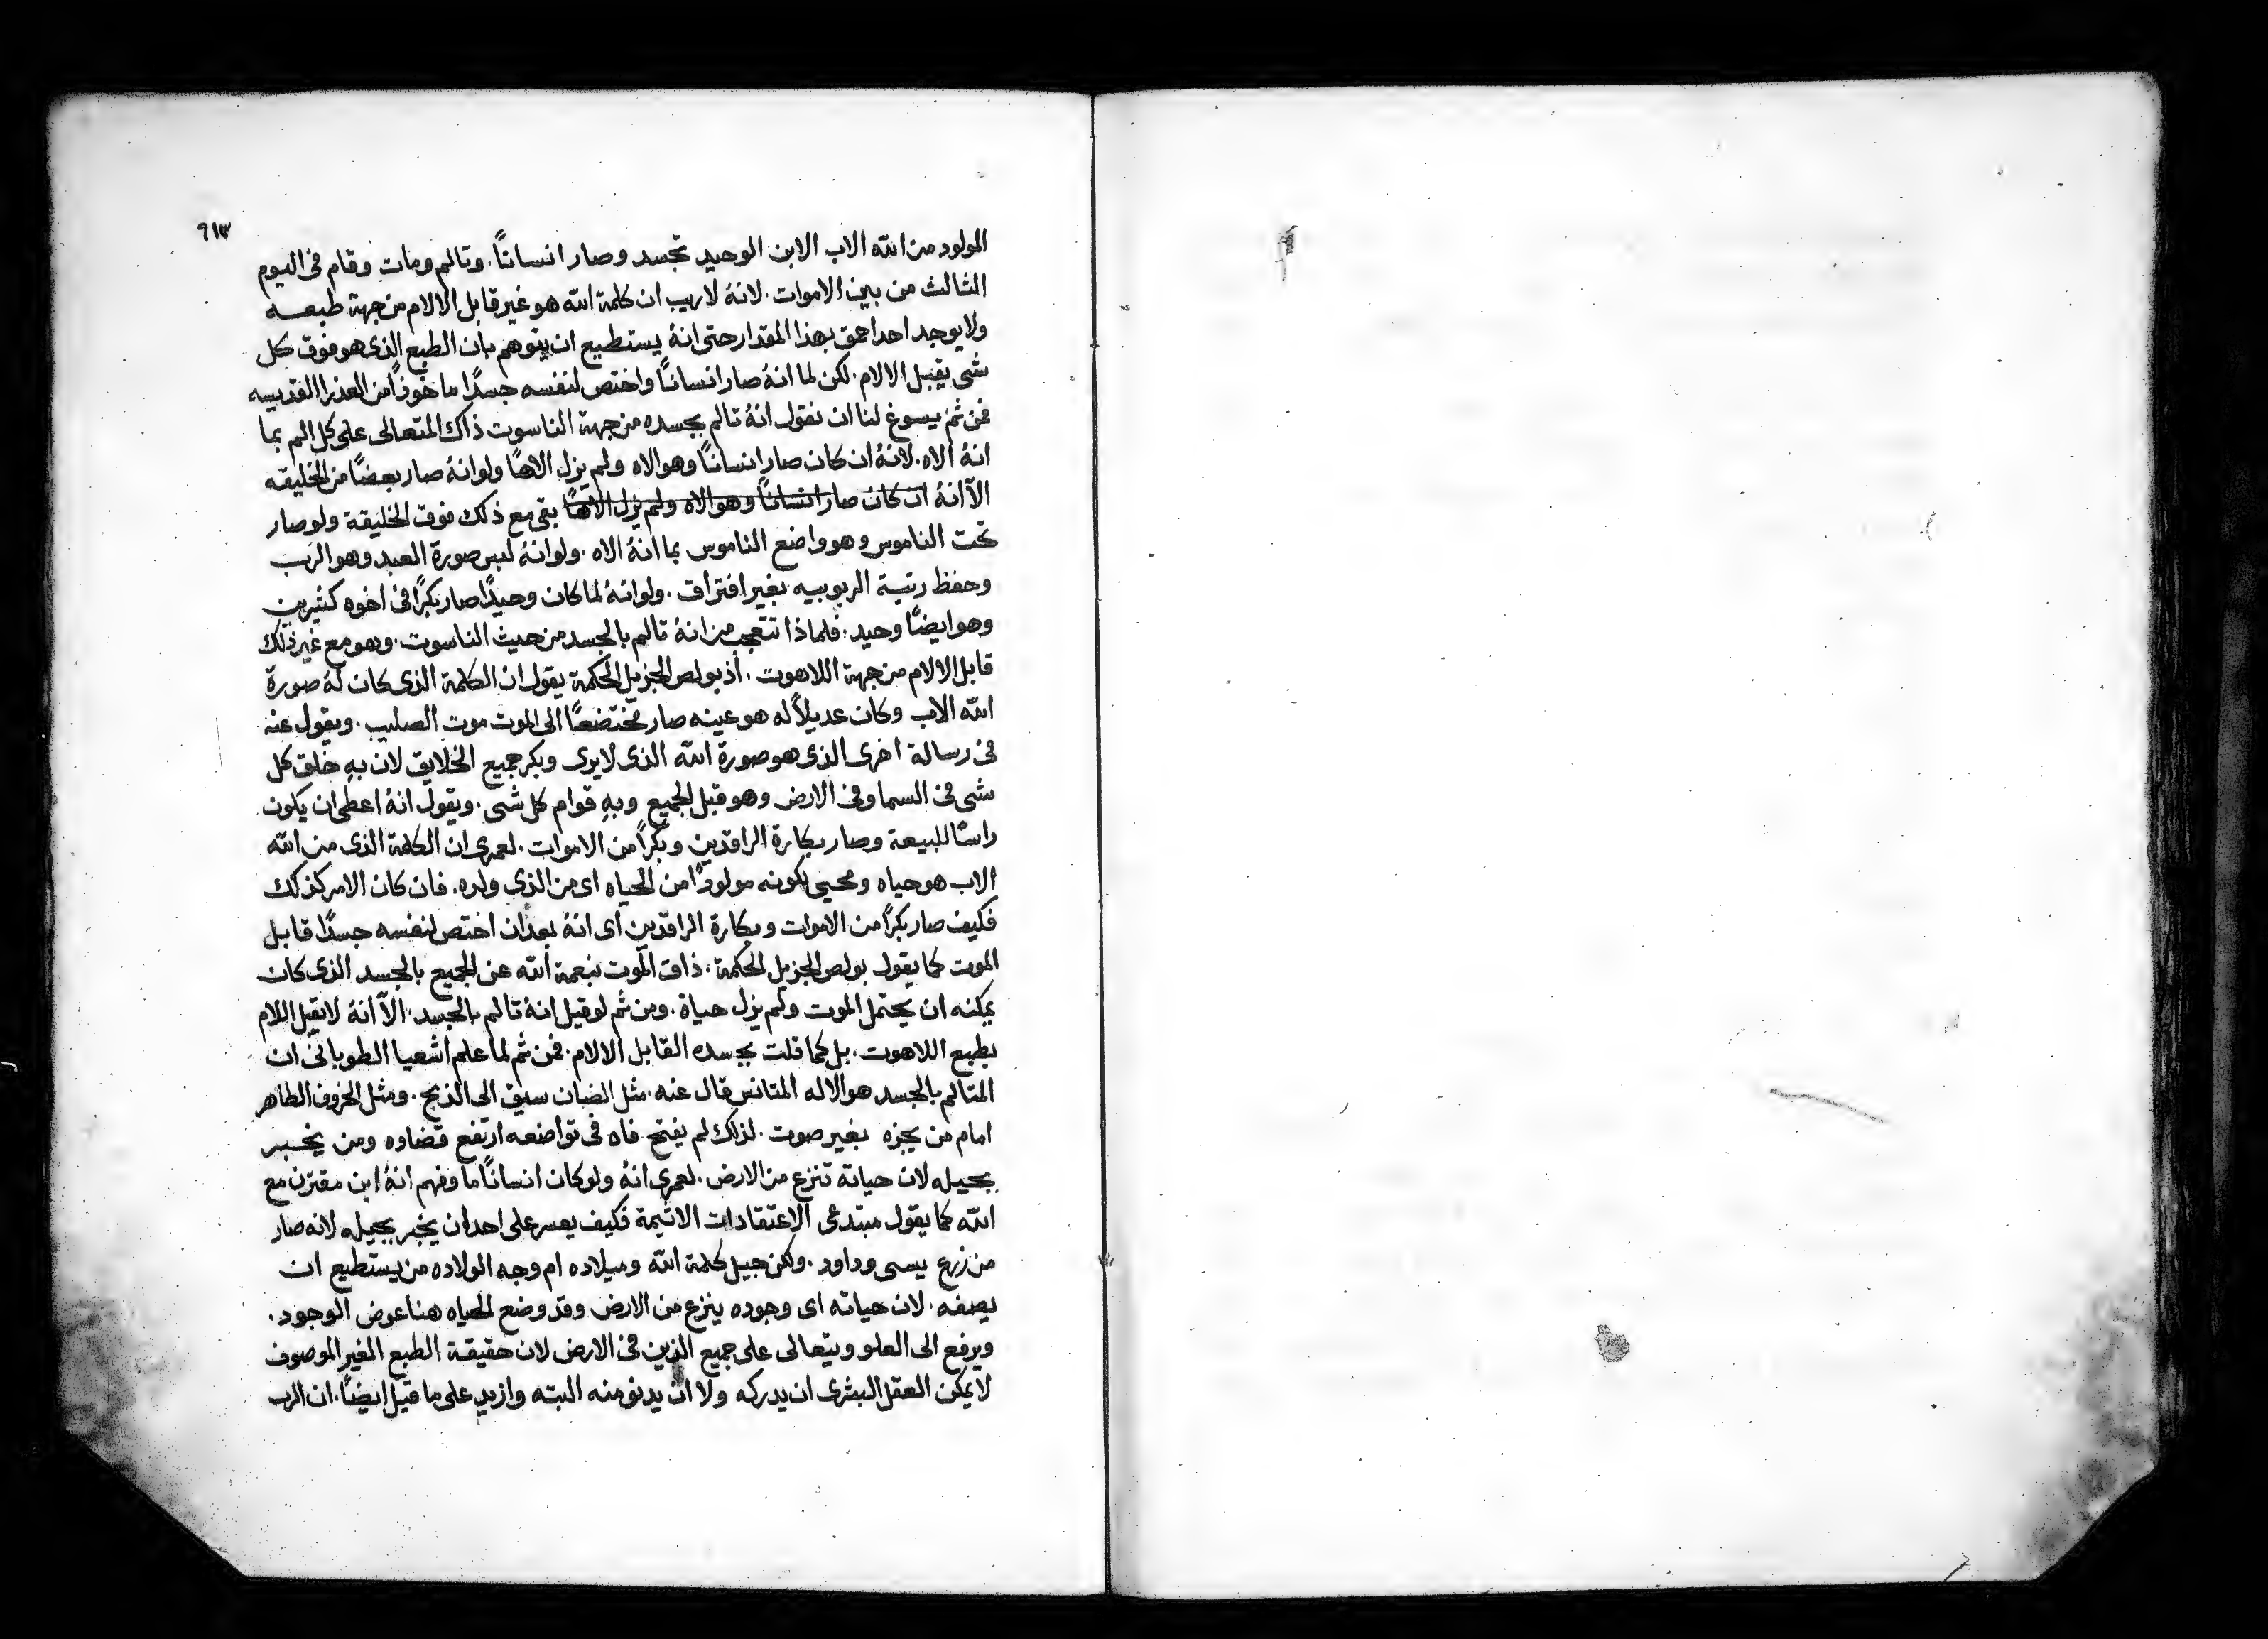 ٦١٣
المولود من الله الاب الابن الوحيد تجسد وصار انسانًا. وتالم ومات وقام فى اليوم
الثالث من بين الاموات. لانهُ لاريب ان كلمة الله هو غير قابل الالام من جهة طبعه
ولا يوجد احد احمق بهذا المقدار حتى انهُ يستطيع ان يتوهم بان الطبع الذى هو فوق كل
شى يقبل الالام. لكن لما انهُ صار انسانًا واختص لنفسه جسدًا ماخوذًا من العذرا القديسه
فمن ثم يسوغ لنا ان نقول انهُ تالم بجسده من جهة الناسوت ذاك المتعالى على كل الم بما
انهُ الاه. لانهُ ان كان صار انسانًا وهو الاه ولم يزل الاهًا ولو انهُ صار بعضًا من الخليقه
الآ انهُ ان كان صار انسانًا وهو الاه ولم يزل الاهًا بقى مع ذلك فوق الخليقة ولو صار
تحت الناموس وهو واضع الناموس بما انهُ الاه. ولو انهُ لبس صورة العبد وهو الرب
وحفظ رتبة الربوبيه بغير افتراق. ولو انهُ لما كان وحيدًا صار بكرًا فى اخوه كثيرين
وهو ايضًا وحيد. فلماذا تتعجب من انهُ تالم بالجسد من حيث الناسوت. وهو مع غير ذلك
قابل الالام من جهة اللاهوت. اذ بولص الجزيل الحكمة يقول ان الكلمة الذى كان لهُ صورة
الله الاب وكان عديلاً له هو عينه صار مختضعًا الى الموت موت الصليب. ويقول عنه
فى رسالة اخرى الذى هو صورة الله الذى لايرى وبكر جميع الخلايق لان بهِ خلق كل
شى فى السما وفى الارض وهو قبل الجميع وبهِ قوام كل شى. ويقول انهُ اعطى ان يكون
راسًا للبيعة وصار بكارة الراقدين وبكرًا من الاموات. لعمرى ان الكلمة الذى من الله
الاب هو حياه ومحيى لكونه مولودًا من الحياه اى من الذى ولده. فان كان الامر كذلك
فكيف صار بكرًا من الاموات وبكارة الراقدين اى انهُ بعد ان اختص لنفسه جسدًا قابل
الموت كما يقول بولص الجزيل الحكمة. ذاق الموت بنعمة الله عن الجميع بالجسد الذى كان
يمكنه ان يحتمل الموت ولم يزل حياة. ومن ثم لو قيل انهُ تالم بالجسد. الآ انهُ لايقبل اللام
بطبع اللاهوت. بل كما قلت بجسده القابل الالام. فمن ثم لما علم اشعيا الطوبانى ان
المتالم بالجسد هو الاله المتانس قال عنه. مثل الضان سيق الى الذبح. ومثل الخروف الطاهر
امام من يجزه بغير صوت. لذلك لم يفتح فاه فى تواضعه ارتفع قضاوه ومن يخبر
بجيله لان حياته تنزع من الارض. لعمرى انهُ ولو كان انسانًا ما وفهم انهُ ابن مقترن مع
الله كما يقول مبتدعى الاعتقادات الاثيمة فكيف يعسر على احد ان يخبر بجيله لانه صار
من زرع يسى وداود. ولكن جيل كلمة الله وميلاده ام وجه الولاده من يستطيع ان
يصفه. لان حياته اى وجوده ينزع من الارض وقد وضع الحياه هنا عوض الوجود.
ويرفع الى العلو ويتعالى على جميع الذين فى الارض لان حقيقة الطبع الغير الموصوف
لايمكن العقل البشرى ان يدركه ولا ان يدنو منه البته وازيد على ما قيل ايضًا. ان الرب